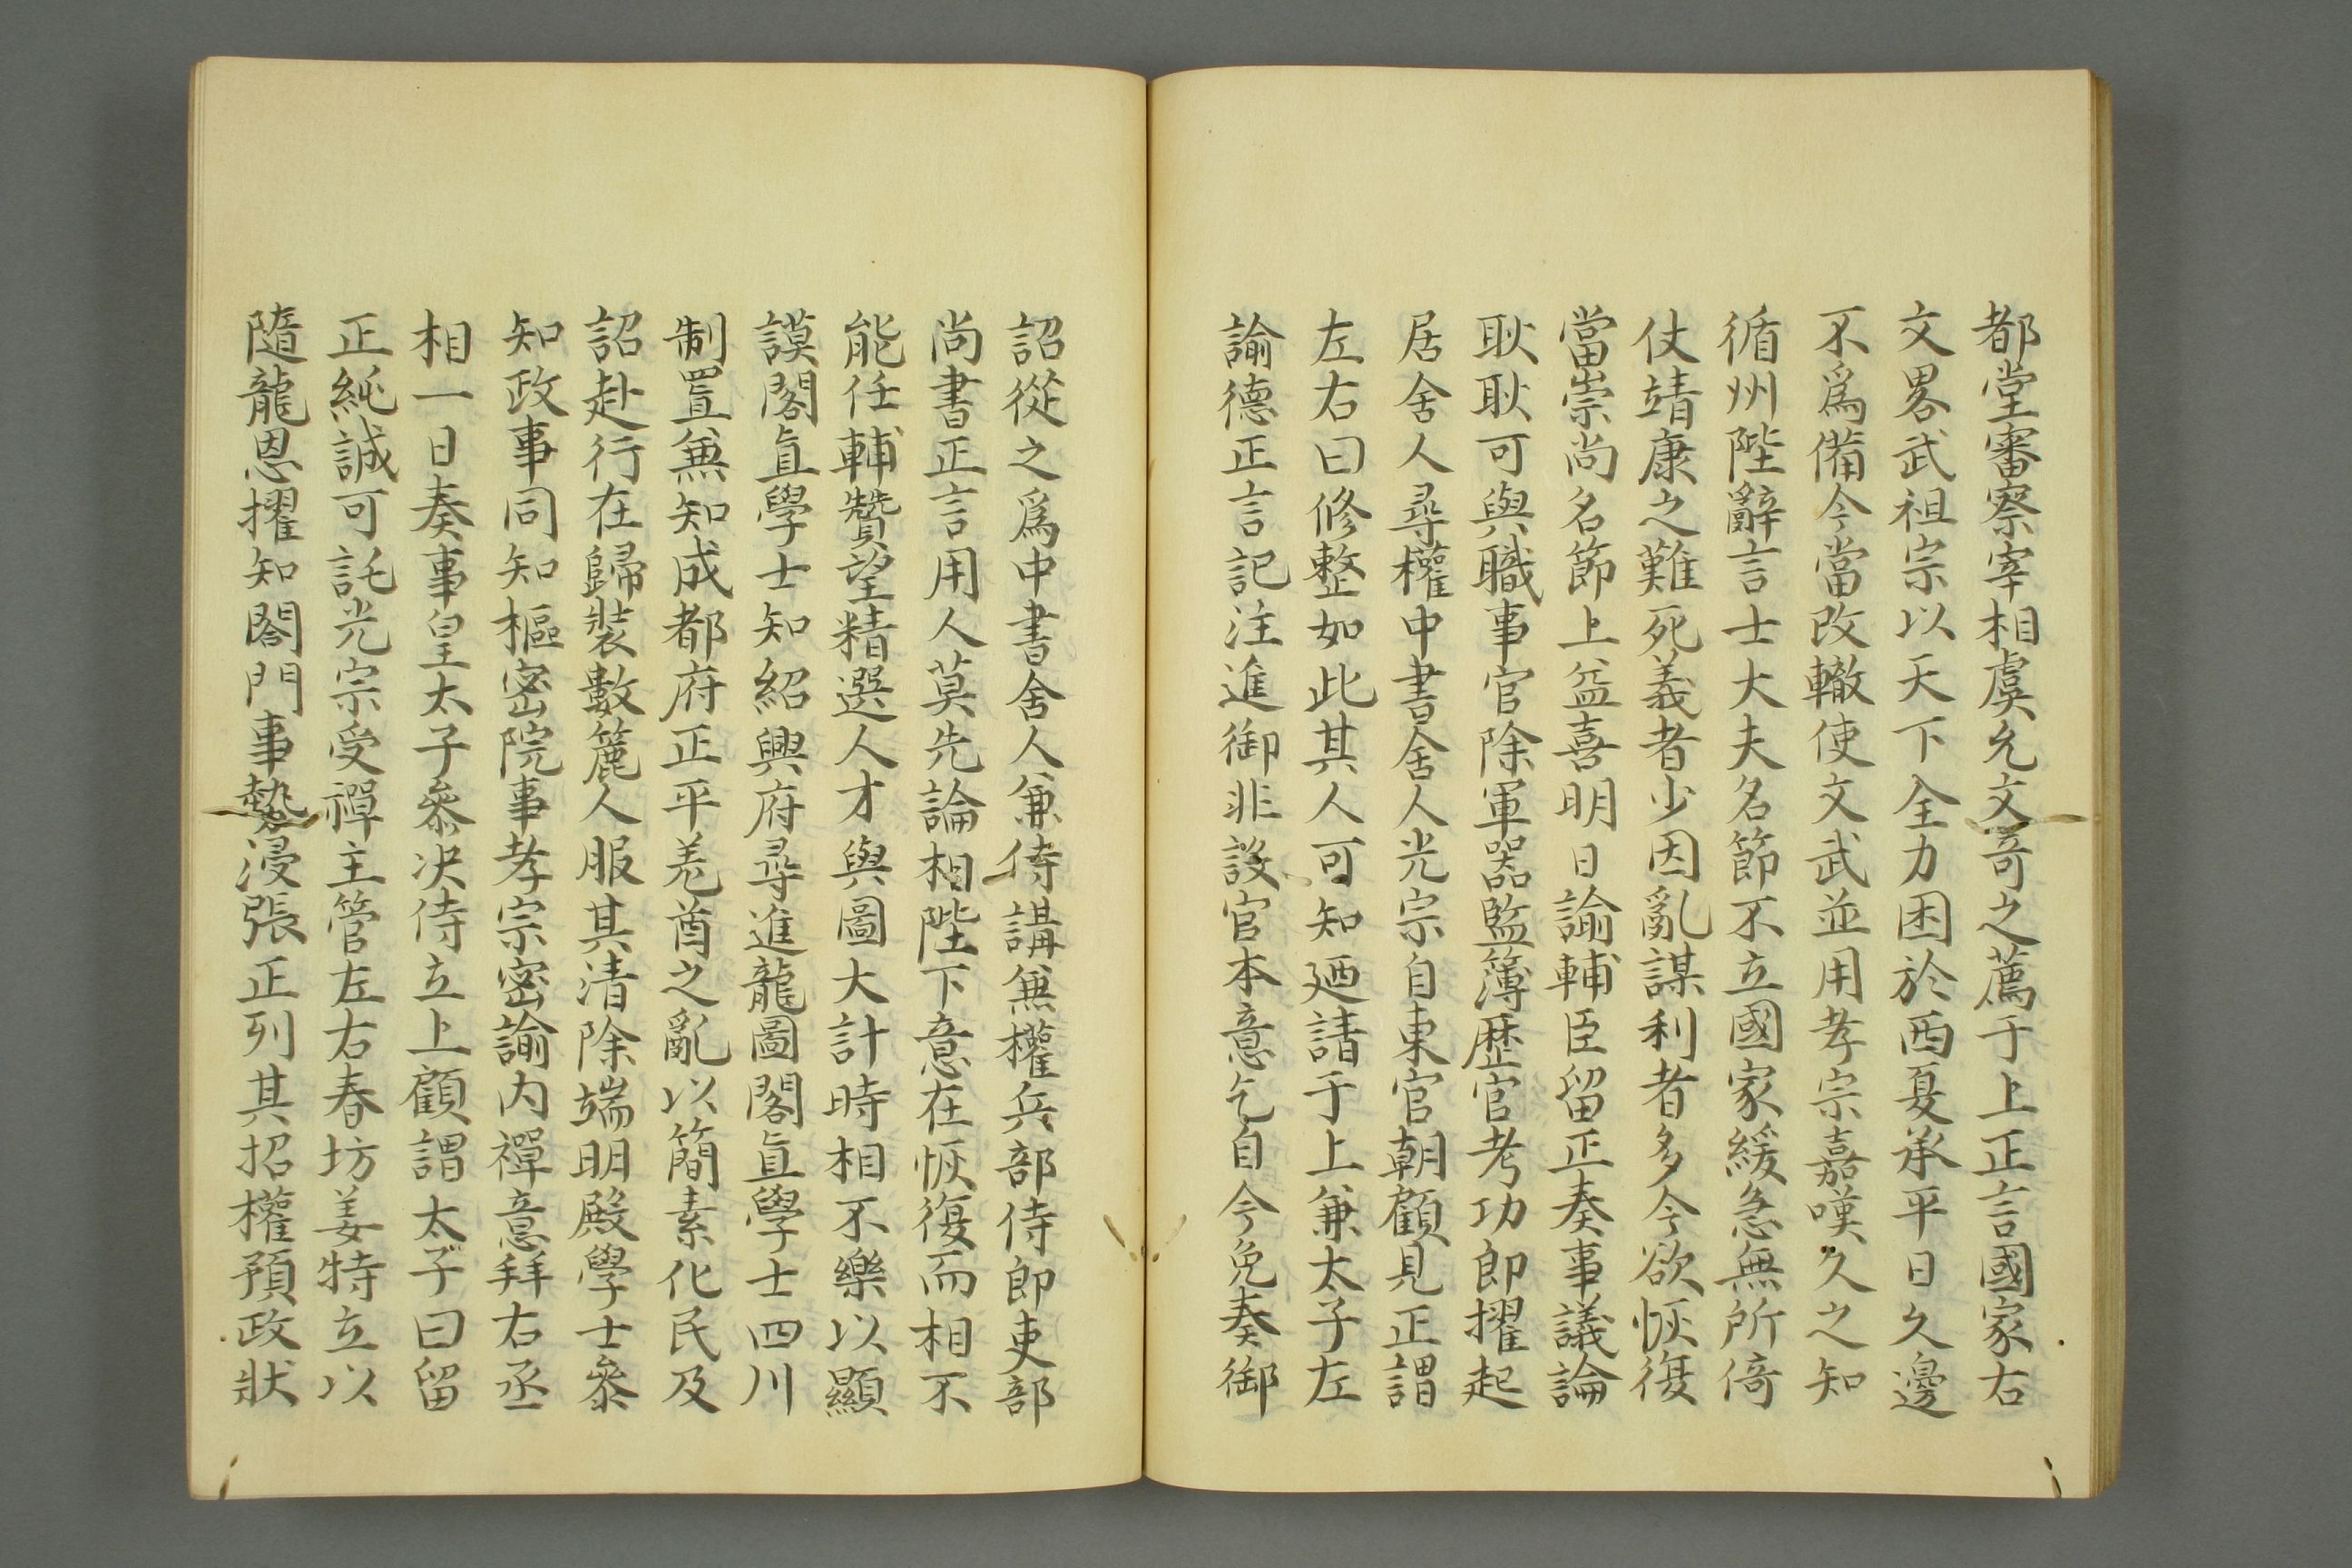 都堂審察宰相虞允文竒之薦于上正言國家右
文畧武祖宗以天下全力困於西夏承平日久邊
不爲備今當改轍使文武並用孝宗嘉嘆久之知
循州陛辭言士大夫名節不立國家緩急無所倚
仗靖康之難死義者少因亂謀利者多今欲恢復
當崇尚名節上益喜明日諭輔臣留正奏事議論
耿耿可與職事官除軍器監簿歷官考功郎擢起
居舍人尋權中書舍人光宗自東宮朝顧見正謂
左右曰修整如此其人可知廼請于上兼太子左
諭德正言記注進御非設官本意乞自今免奏御
詔從之爲中書舍人兼侍講兼權兵部侍郎吏部
尚書正言用人莫先論相陛下意在恢復而相不
能任輔贊望精選人才與圖大計時相不樂以顯
謨閣直學士知紹興府尋進龍圖閣直學士四川
制置兼知成都府正平羌酋之亂以簡素化民及
詔赴行在歸裝數簏人服其清除端明殿學士參
知政事同知樞密院事孝宗密諭內禪意拜右丞
相一日奏事皇太子參決侍立上顧謂太子曰留
正純誠可託光宗受禪主管左右春坊姜特立以
隨龍恩擢知閤門事勢浸張正列其招權預政狀